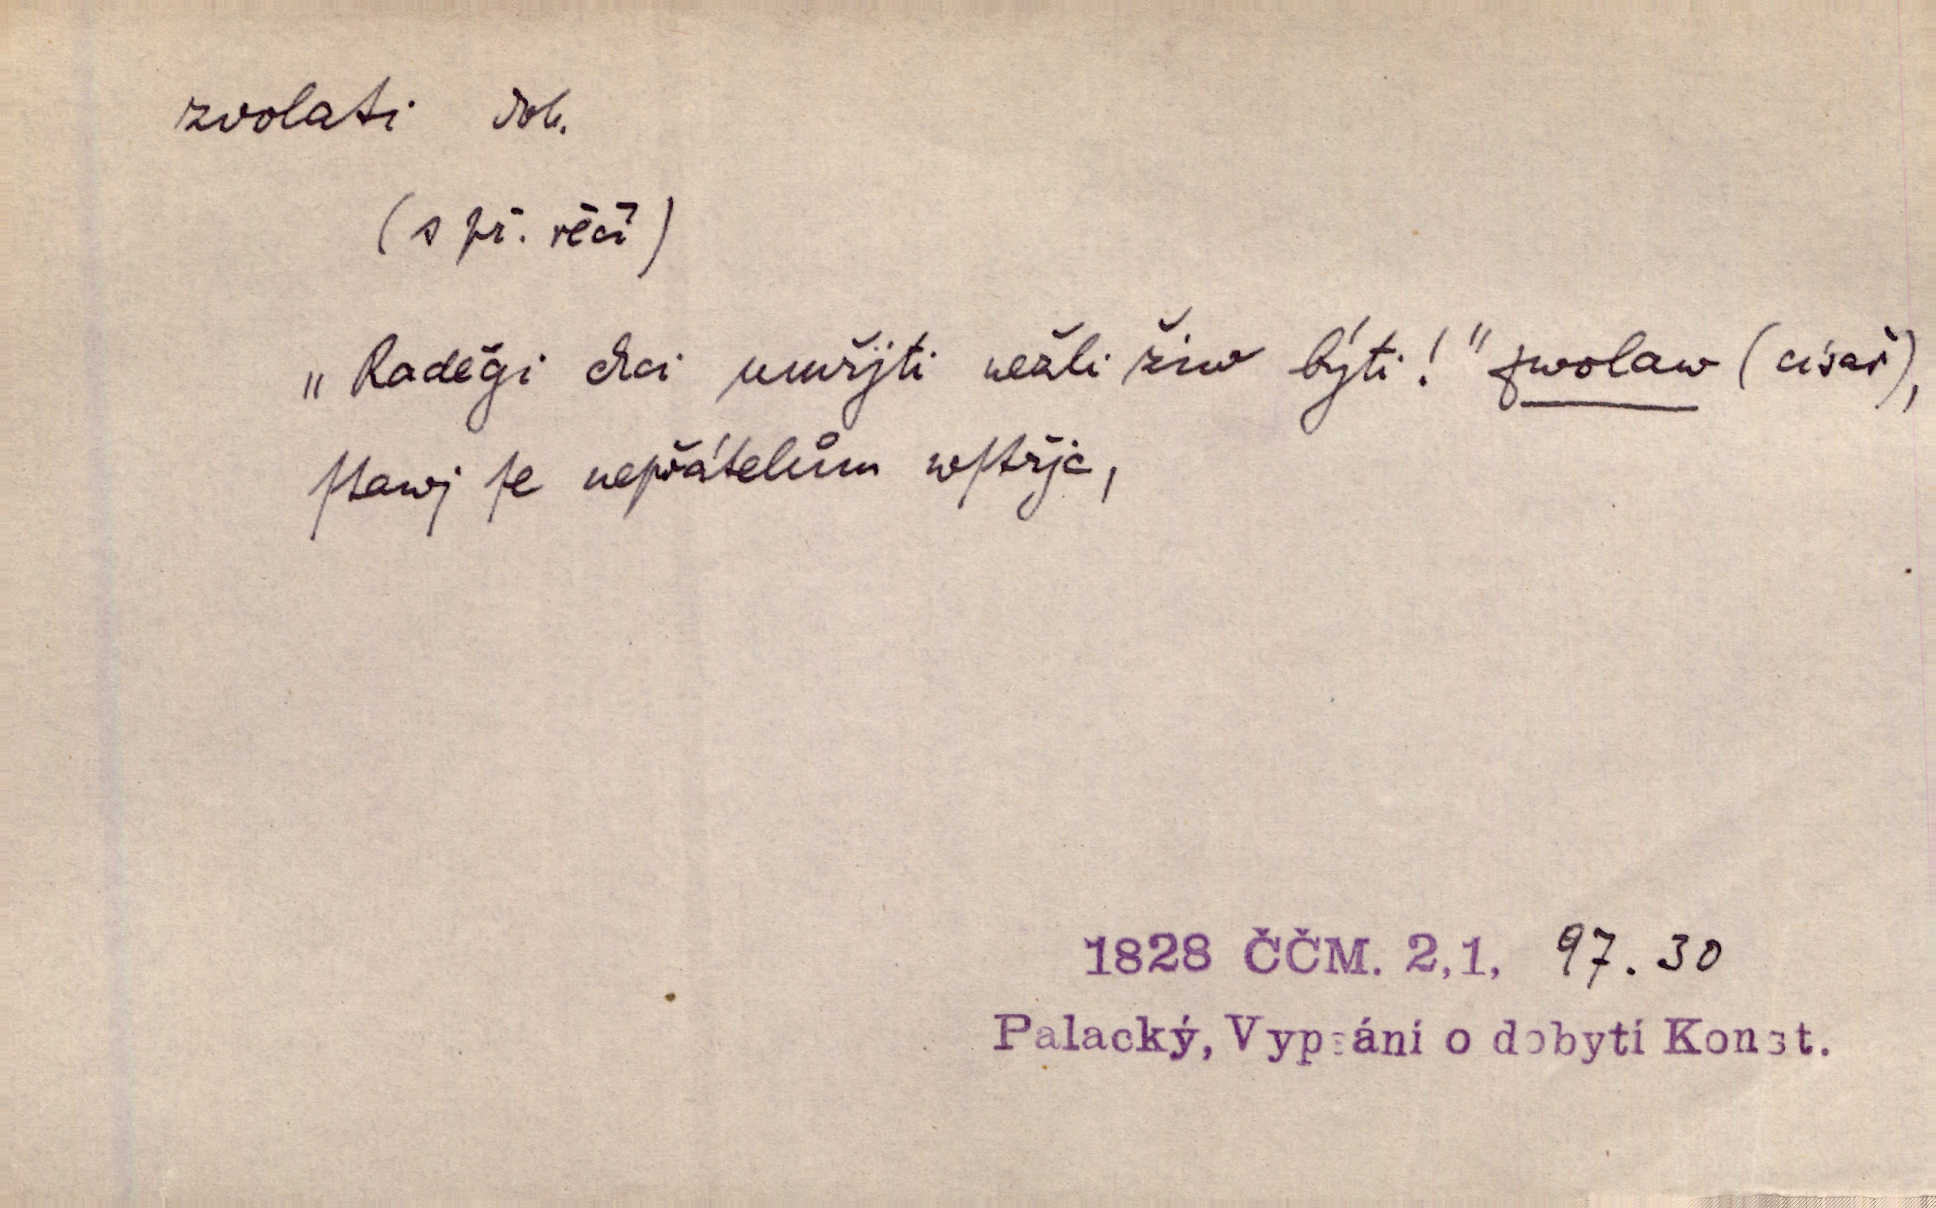 zvolati dok.
(s př. řečí)
„Raděgi chci umřjti nežli žiw býti!" zwolaw (císař),
ſtawj ſe nepřátelům wſtřjc,
1828 ČČM. 2,1, 97.30
Palacký, Vypsání o dobytí Konst.